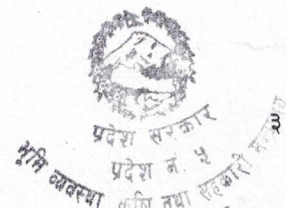 प्रदेश सरकार
प्रदेश नं. ५
भूमि व्यवस्था कृषि तथा सहकारी